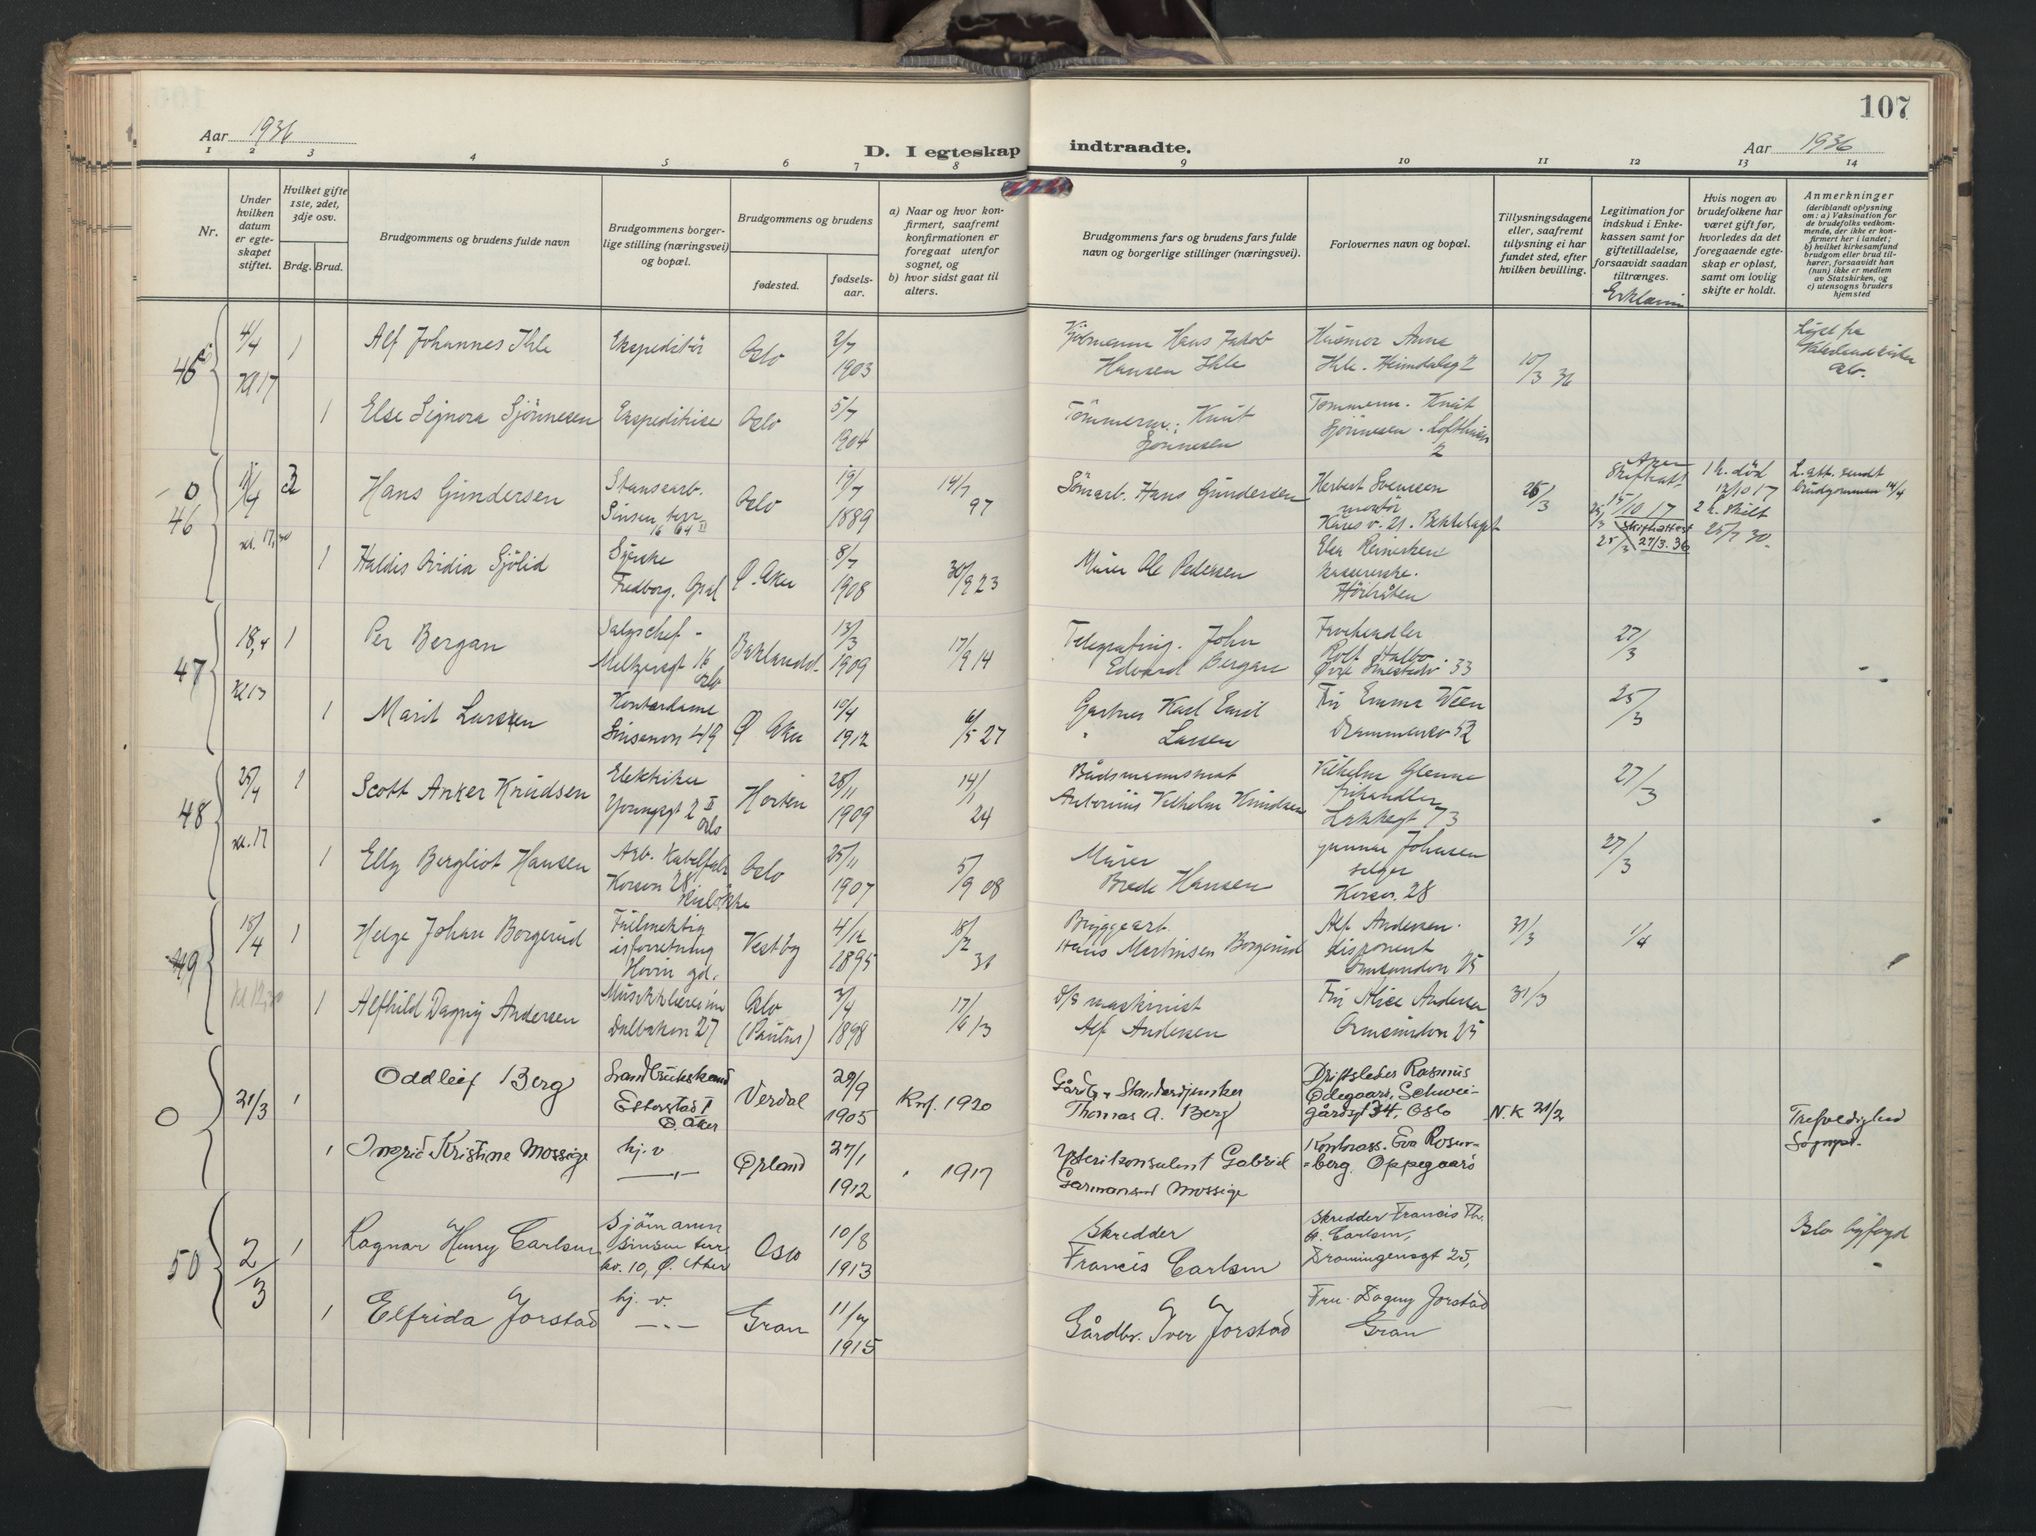 107
Aar 1936
D. I egteskap indtraadte.
Aar 1936
1 2 3 4 5 6 7 8 9 10 11 12 13 14
Nr.
Under hvilken datum er egteskapet stiftet.
Hvilket gifte 1ste, 2det, 3dje osv.
Brdg. Brud.
Brudgommens og brudens fulde navn
Brudgommens borgerlige stilling (næringsvei) og bopæl.
Brudgommens og brudens
fødested.
fødselsaar.
a) Naar og hvor konfirmert, saafremt konfirmationen er foregaat utenfor sognet, og
b) hvor sidst gaat til alters.
Brudgommens fars og brudens fars fulde navn og borgerlige stillinger (næringsvei).
Forlovernes navn og bopæl.
Tillysningsdagene eller, saafremt tillysning ei har fundet sted, efter hvilken bevilling.
Legitimation for indskud i Enkekassen samt for giftetilladelse, forsaavidt saadan tiltrænges.
Hvis nogen av brudefolkene har været gift før, hvorledes da det foregaaende egteskap er opløst, samt om lovlig skifte er holdt.
Anmerkninger
(deriblandt oplysning om: a) Vaksination for de brudefolks vedkommende, der ikke er konfirmert her i landet; b) hvilket kirkesamfund brudgom eller brud tilhører, forsaavidt han (hun) ikke er medlem av Statskirken, og c) utensogns bruders hjemsted
4/4 1 Alf Johannes Ihle Ekspeditør Oslo 2/7 1903
Hans Jakob Hansen Ihle
Husmor Anna Ihle. Heimdalsgt 2
10/3 36
Kl 17
1 Else Signora Sjønnesen Ekspeditrise Oslo 5/7 1904
Tømmerm. Knut Sjønnesen
Tømmerm. Knut Sjønnesen. Lofthusv 2
46 11/4 3 Hans Gundersen
Sinsen terr
Oslo 19/7 1889 14/7 97
Hans Gundersen
Herbert Svenssen montør
25/3
1 h. død 12/10 17
2 h. skilt 25/7 30.
Skiftattest 27/3.36
L. att. sendt brudgommen 14/4
kl. 17,30
1 Haldis Ovidia Sjølid Syerske Fredborg, Opsal Ø. Aker 8/7 1908 30/9 23
Murer Ole Pedersen
Elsa Reinesken kassererske.
47 18/4 1 Per Bergan Salgschef Oslo 13/3 1909 17/9 14
John Edvard Bergan
Rolf Halbo
27/3
Kl 13
1 Marit Larssen Kontordame Sinsenvn 49 Ø Aker 10/4 1912 6/5 27
Gartner Karl Emil Larsen
Fru Emma Veen Drammensv 52
25/3
48 25/4 1 Scott Anker Knudsen Elektriker Youngsgt 2 II Oslo Horten 28/11 1909 14/1 24
Bådsmannsmat Antonius Vilhelm Knudsen
Vilhelm Glenne Lakkegt 73
27/3
kl. 17
1 Elly Bergliot Hansen Arb. Kabelfabr Korsvn 28 Oslo 25/11 1907 5/9 08
Murer Brede Hansen
Gunnar Johnsen selger Korsv. 28
27/3
49 18/4 1 Helge Johan Borgerud Fullmektig isforretning Hovin gd. Vestby 4/12 1895 18/2 31
Bryggearb. Hans Martinsen Borgerud
Alf Andersen. disponent Ormsundvn 25
31/3 1/4
1 Alfhild Dagny Andersen Musikklærerinne Dalbakken 27 Oslo (Paulus) 2/4 1898 17/6 13
d/s maskinist Alf Andersen
Fru Alice Andersen Ormsundvn 25
31/3
0 21/3 1 Oddleif Berg Landbrukskand Etterstad I Ø. Aker Verdal 29/9 1905 Knf. 1920
Thomas A. Berg
Driftsleder Rasmus Ødegaard, Schweigårdsgt 34, Oslo
N. K 21/2
Trefoldighed Sognepr.
1 Ingrid Kristine Mossige hj. v Ørland 27/1 1912 " 1917
Ysterikonsulent Gabriel Garmansend Mossige
Kontorass. Eva Rosenberg. Oppegaard
50 2/3 1 Ragnar Henry Carlsen Sjømann Sinsen terr kv. 10, Ø. Aker Oslo 10/8 1913
Skredder Francis Carlsen
Skredder Francis Th. Carlsen, Dronningensgt 25,
Oslo byfogd
1 Elfrida Jorstad hj. v. Gran 11/7 1915
Gårdbr. Iver Jorstad
Fru Dagny Jorstad Gran